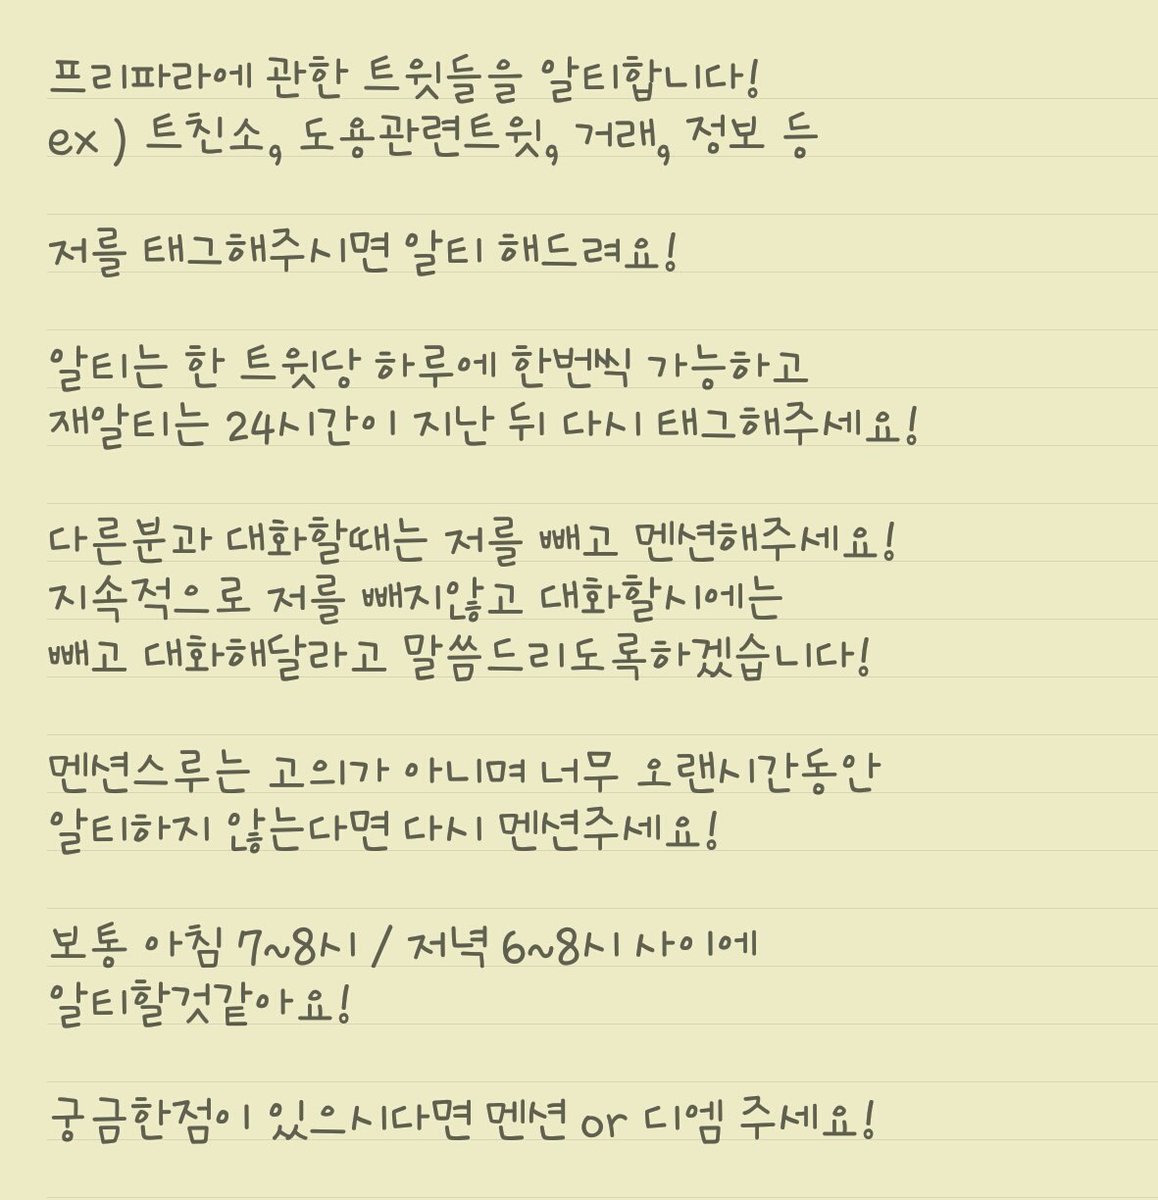 프리파라에 관한 트윗들을 알티합니다!
ex ) 트친소, 도용관련트윗, 거래, 정보 등
저를 태그해주시면 알티 해드려요!
알티는 한 트윗당 하루에 한번씩 가능하고
재알티는 24시간이 지난 뒤 다시 태그해주세요!
다른분과 대화할때는 저를 빼고 멘션해주세요!
지속적으로 저를 빼지않고 대화할시에는
빼고 대화해달라고 말씀드리도록하겠습니다!
멘션스루는 고의가 아니며 너무 오랜시간동안
알티하지 않는다면 다시 멘션주세요!
보통 아침 7~8시 / 저녁 6~8시 사이에
알티할것같아요!
궁금한점이 있으시다면 멘션 or 디엠 주세요!